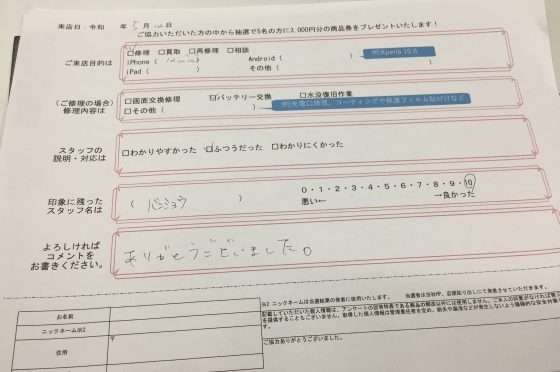 来店日：令和　　年 5月　　日
ご協力いただいた方の中から抽選で5名の方に3,000円分の商品券をプレゼントいたします！
ご来店目的は
□修理　□買取　□再修理　□相談
iPhone（　　　　）　Android（　　　　）
例)Xperia XZ等
iPad（　　　　）　その他（　　　　）
（ご修理の場合）
修理内容は
□画面交換修理　☑バッテリー交換　□水没復旧作業
□その他（　　　　）
スタッフの
説明・対応は
□わかりやすかった　□ふつうだった　□わかりにくかった
印象に残った
スタッフ名は
（　バンショウ　）
0・1・2・3・4・5・6・7・8・9・10
悪い←　→良かった
よろしければ
コメントを
お書きください。
ありがとうございました。
※2 ニックネームは当選結果の発表に使用いたします。
お名前
ニックネーム※2
住所
〒
ご協力ありがとうございました。